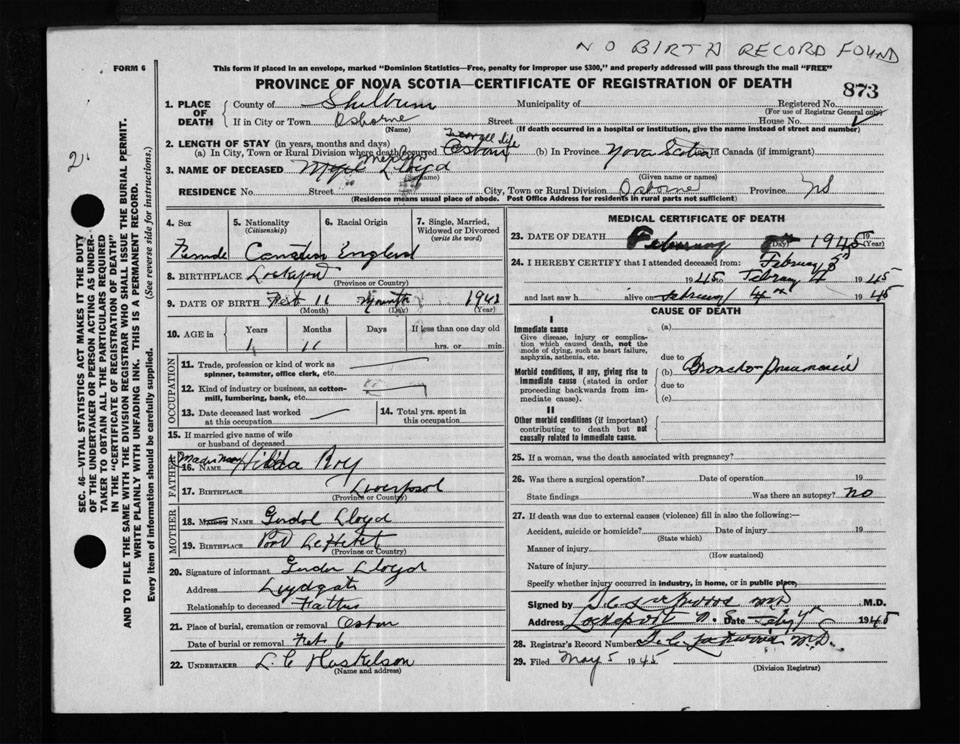 NO BIRTH RECORD FOUND
FORM 6
This form if placed in an envelope, marked "Dominion Statistics—Free, penalty for improper use $300," and properly addressed will pass through the mail "FREE"
PROVINCE OF NOVA SCOTIA—CERTIFICATE OF REGISTRATION OF DEATH
873
1. PLACE OF DEATH
County of Municipality of Registered No.
(For use of Registrar General only)
If in City or Town Osborne Street House No.
(Name) (If death occurred in a hospital or institution, give the name instead of street and number)
2. LENGTH OF STAY (in years, months and days)
(a) In City, Town or Rural Division where death occurred (b) In Province Nova Scotia If Canada (if immigrant)
3. NAME OF DECEASED Lloyd
(Surname) (Given name or names)
RESIDENCE No. Street City, Town or Rural Division Osborne Province NS
(Residence means usual place of abode. Post Office Address for residents in rural parts not sufficient)
4. Sex
5. Nationality
(Citizenship)
6. Racial Origin
7. Single, Married, Widowed or Divorced
(write the word)
Female Canadian England
8. BIRTHPLACE Lockeport
(Province or Country)
9. DATE OF BIRTH Feb 11
(Month) (Day) (Year)
10. AGE in
Years Months Days If less than one day old
1 11 hrs. or min.
OCCUPATION
11. Trade, profession or kind of work as spinner, teamster, office clerk, etc.
12. Kind of industry or business, as cotton-mill, lumbering, bank, etc.
13. Date deceased last worked at this occupation
14. Total yrs. spent in this occupation
15. If married give name of wife or husband of deceased
FATHER
16. NAME Hilda Roy
17. BIRTHPLACE Liverpool
(Province or Country)
MOTHER
18. MAIDEN NAME Lloyd
19. BIRTHPLACE
(Province or Country)
20. Signature of informant Lloyd
Address
Relationship to deceased Father
21. Place of burial, cremation or removal
Date of burial or removal Feb 6
22. UNDERTAKER
(Name and address)
MEDICAL CERTIFICATE OF DEATH
23. DATE OF DEATH February 1945
(Day) (Year)
24. I HEREBY CERTIFY that I attended deceased from:
February 3
1945 to February 4 1945
and last saw h alive on February 4 1945
CAUSE OF DEATH
I
Immediate cause
Give disease, injury or complication which caused death, not the mode of dying, such as heart failure, asphyxia, asthenia, etc.
(a)
due to
Morbid conditions, if any, giving rise to immediate cause (stated in order proceeding backwards from immediate cause).
(b) Broncho-Pneumonia
due to
(c)
II
Other morbid conditions (if important) contributing to death but not causally related to immediate cause.
25. If a woman, was the death associated with pregnancy?
26. Was there a surgical operation? Date of operation 19
State findings Was there an autopsy? no
27. If death was due to external causes (violence) fill in also the following:—
Accident, suicide or homicide? Date of injury 19
(State which)
Manner of injury
(How sustained)
Nature of injury
Specify whether injury occurred in industry, in home, or in public place,
Signed by M.D.
Address Lockeport N.S. Date 1945
28. Registrar's Record Number
29. Filed May 5 1945
(Division Registrar)
SEC. 46—VITAL STATISTICS ACT MAKES IT THE DUTY
OF THE UNDERTAKER OR PERSON ACTING AS UNDER-
TAKER TO OBTAIN ALL THE PARTICULARS REQUIRED
IN THE "CERTIFICATE OF REGISTRATION OF DEATH"
AND TO FILE THE SAME WITH THE DIVISION REGISTRAR WHO SHALL ISSUE THE BURIAL PERMIT.
WRITE PLAINLY WITH UNFADING INK. THIS IS A PERMANENT RECORD.
Every item of information should be carefully supplied. (See reverse side for instructions.)